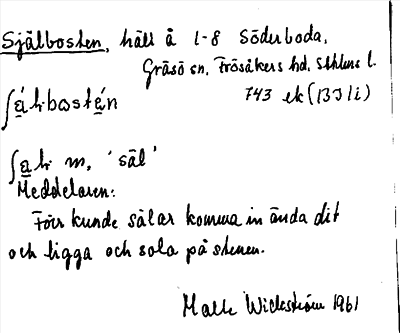 Själbosten, häll å 1-8 Söderboda,
Gräsö sn, Frösåkers hd, Sthlms l.
743 ek (13J 1i)
m, 'säl'
Meddelaren:
Förr kunde sälar komma in ända dit
och ligga och sola på stenen.
Malte Wickström 1961